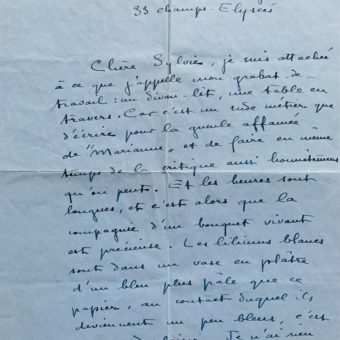 33 champs-Elysées
Chère Sylvie, je suis attachée
à ce que j'appelle mon grabat-de-
travail: un divan-lit, une table en
travers. Car c'est un rude métier que
d'écrire pour la gueule affamée
de "Marianne" et de faire en même
temps de la critique aussi honnêtement
qu'on peut. Et les heures sont
longues, et c'est alors que la
compagnie d'un bouquet vivant
est précieuse. Les liliums blancs
sont dans un vase en plâtre
d'un bleu plus pâle que ce
papier, au contact duquel ils
deviennent un peu bleus, c'est
Je n'ai rien